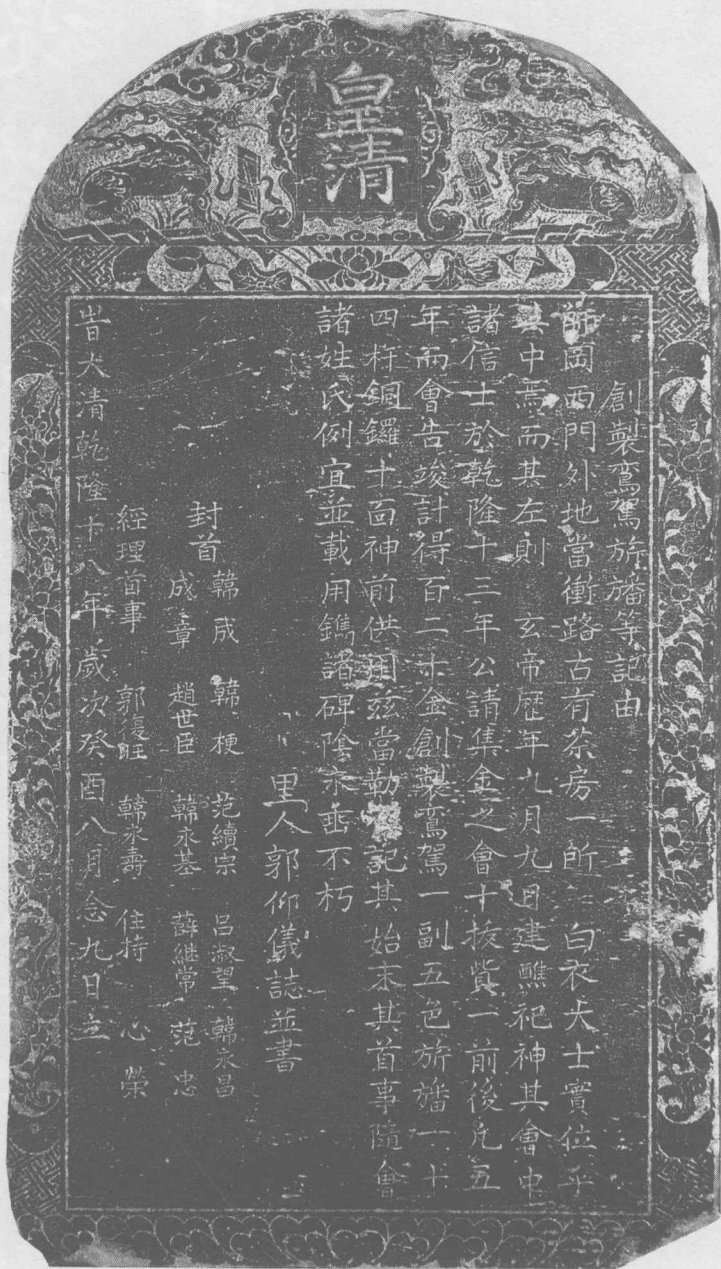 皇清
創製鸾駕旂旛等記由
岡西門外地當衝路古有茶房一所 白衣大士實位乎
其中焉而其左則 玄帝歷年九月九日建醮祀神其會中
諸信士於乾隆十三年公請集金之會十拔貲一前後凡五
年而會告竣計得百二十金創製鸾駕一副五色旂旛一十
四杆銅鑼十面神前供用茲當勒記其始末其首事隨會
諸姓氏例宜並載用鐫諸碑陰永垂不朽
里人郭仰儀誌並書
封首 韓成 韓梗 范續宗 呂淑望 韓永昌
成章 趙世臣 韓永基 薛繼常 范忠
經理首事 郭復旺 韓永壽 住持 心榮
旹大清乾隆十八年歲次癸酉八月念九日立